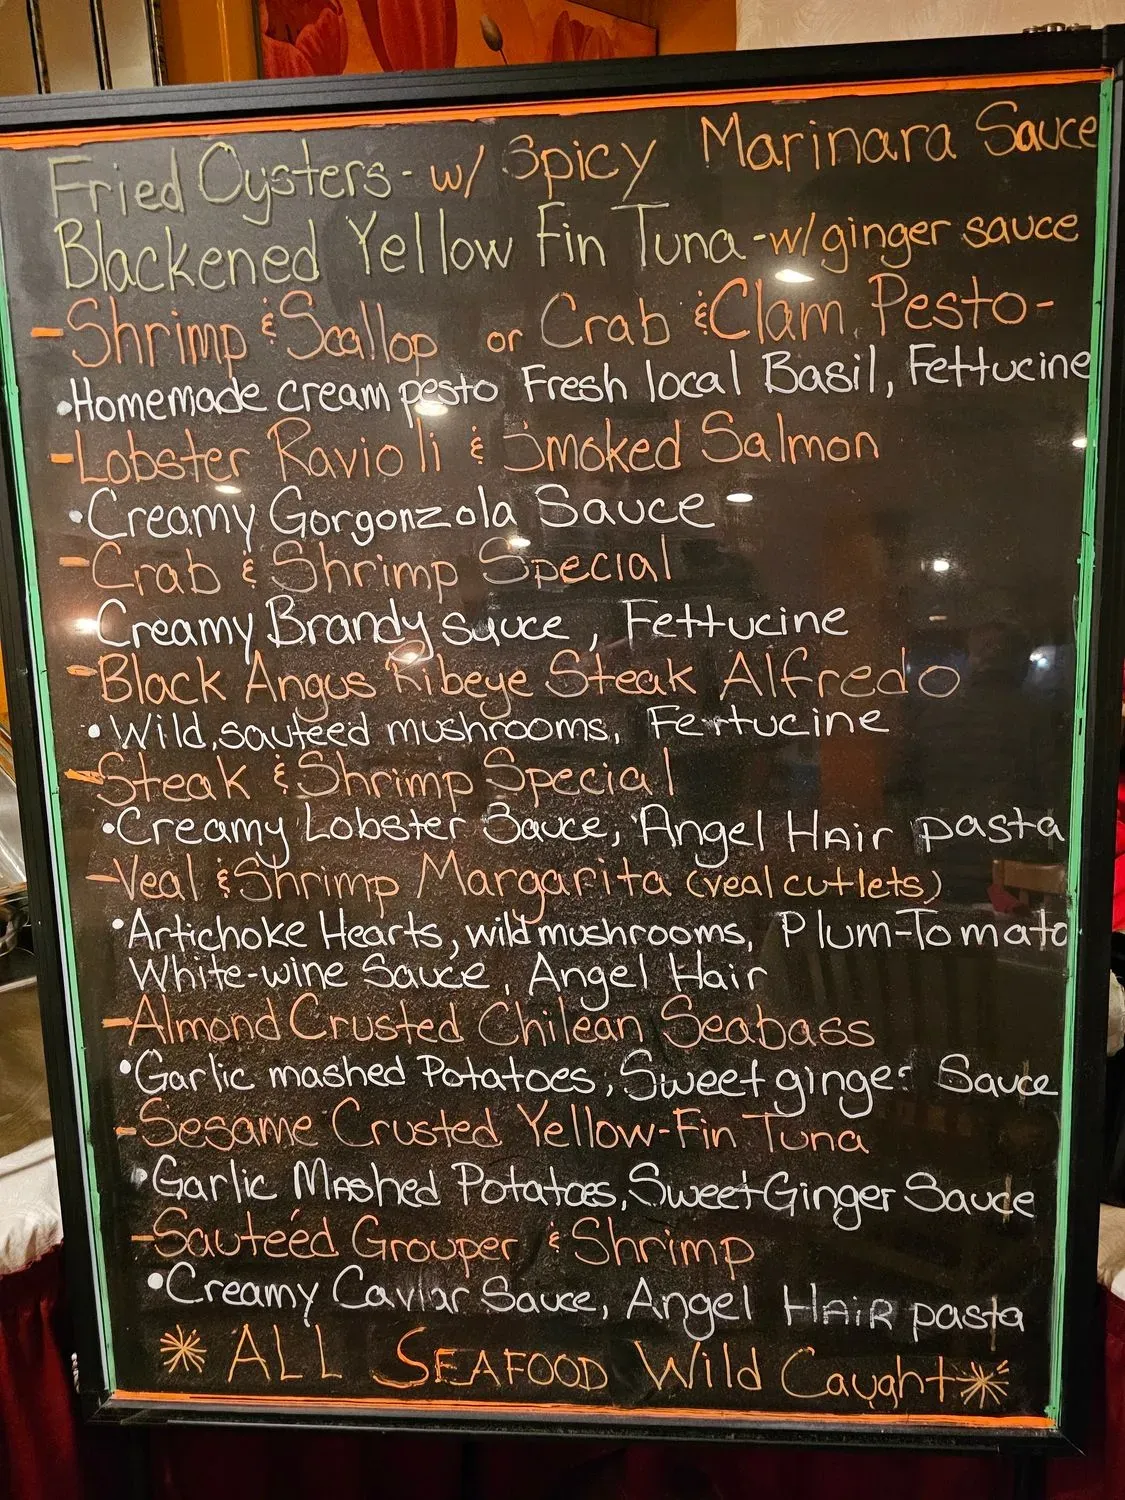 Fried Oysters - w/ Spicy Marinara Sauce
Blackened Yellow Fin Tuna - w/ ginger sauce
- Shrimp & Scallop or Crab & Clam Pesto -
• Homemade cream pesto Fresh local Basil, Fettucine
- Lobster Ravioli & Smoked Salmon
• Creamy Gorgonzola Sauce
- Crab & Shrimp Special
Creamy Brandy sauce, Fettucine
- Black Angus Ribeye Steak Alfredo
• Wild, sauteed mushrooms, Fettucine
- Steak & Shrimp Special
• Creamy Lobster Sauce, Angel Hair pasta
- Veal & Shrimp Margarita (veal cutlets)
• Artichoke Hearts, wild mushrooms, Plum-Tomato
White-wine Sauce, Angel Hair
- Almond Crusted Chilean Seabass
• Garlic mashed Potatoes, Sweet ginger Sauce
- Sesame Crusted Yellow-Fin Tuna
• Garlic Mashed Potatoes, Sweet Ginger Sauce
- Sauteéd Grouper & Shrimp
• Creamy Caviar Sauce, Angel Hair pasta
* ALL SEAFOOD Wild Caught *